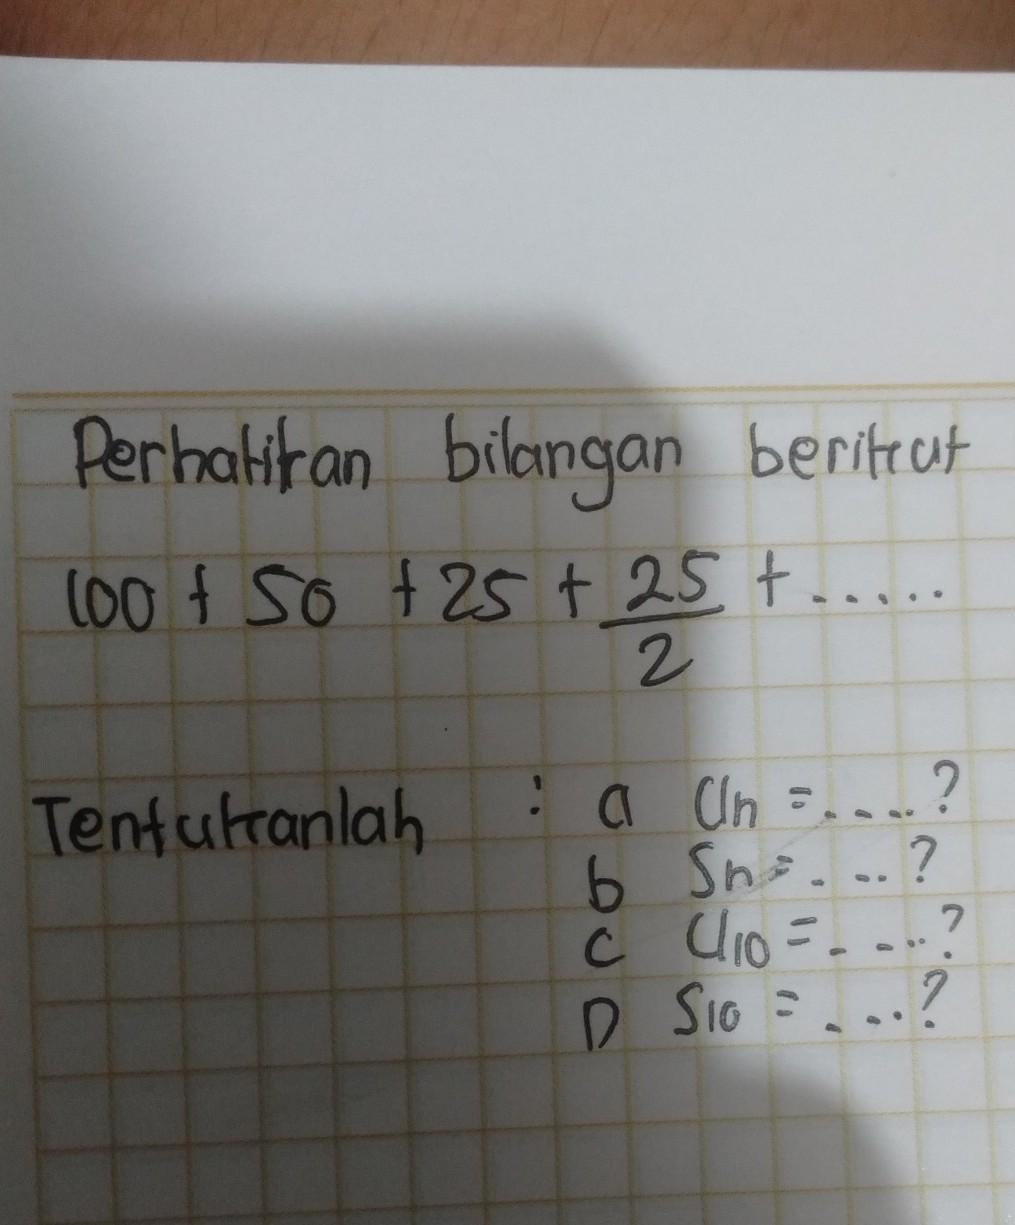 Perhatikan bilangan berikut
100 + 50 + 25 + 25/2 + .....
Tentukanlah : a Un = ....?
b Sn = ....?
c U10 = ....?
D S10 = ....?